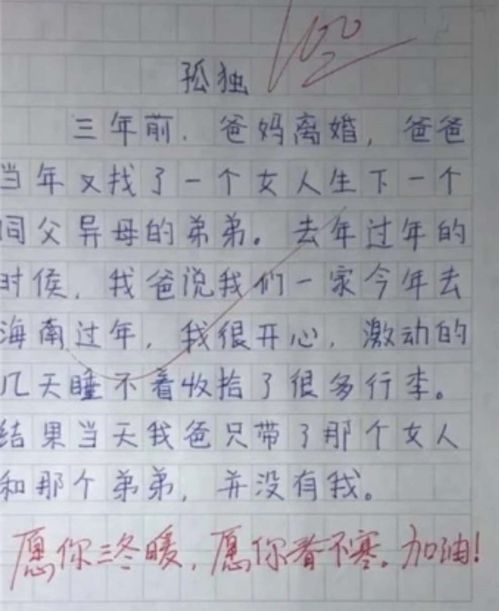 100
孤独
三年前.爸妈离婚,爸爸
当年又找了一个女人生下一个
同父异母的弟弟。去年过年的
时侯,我爸说我们一家今年去
海南过年,我很开心,激动的
几天睡不着收拾了很多行李。
结果当天我爸只带了那个女人
和那个弟弟,并没有我。
愿你三冬暖,愿你春不寒。加油!